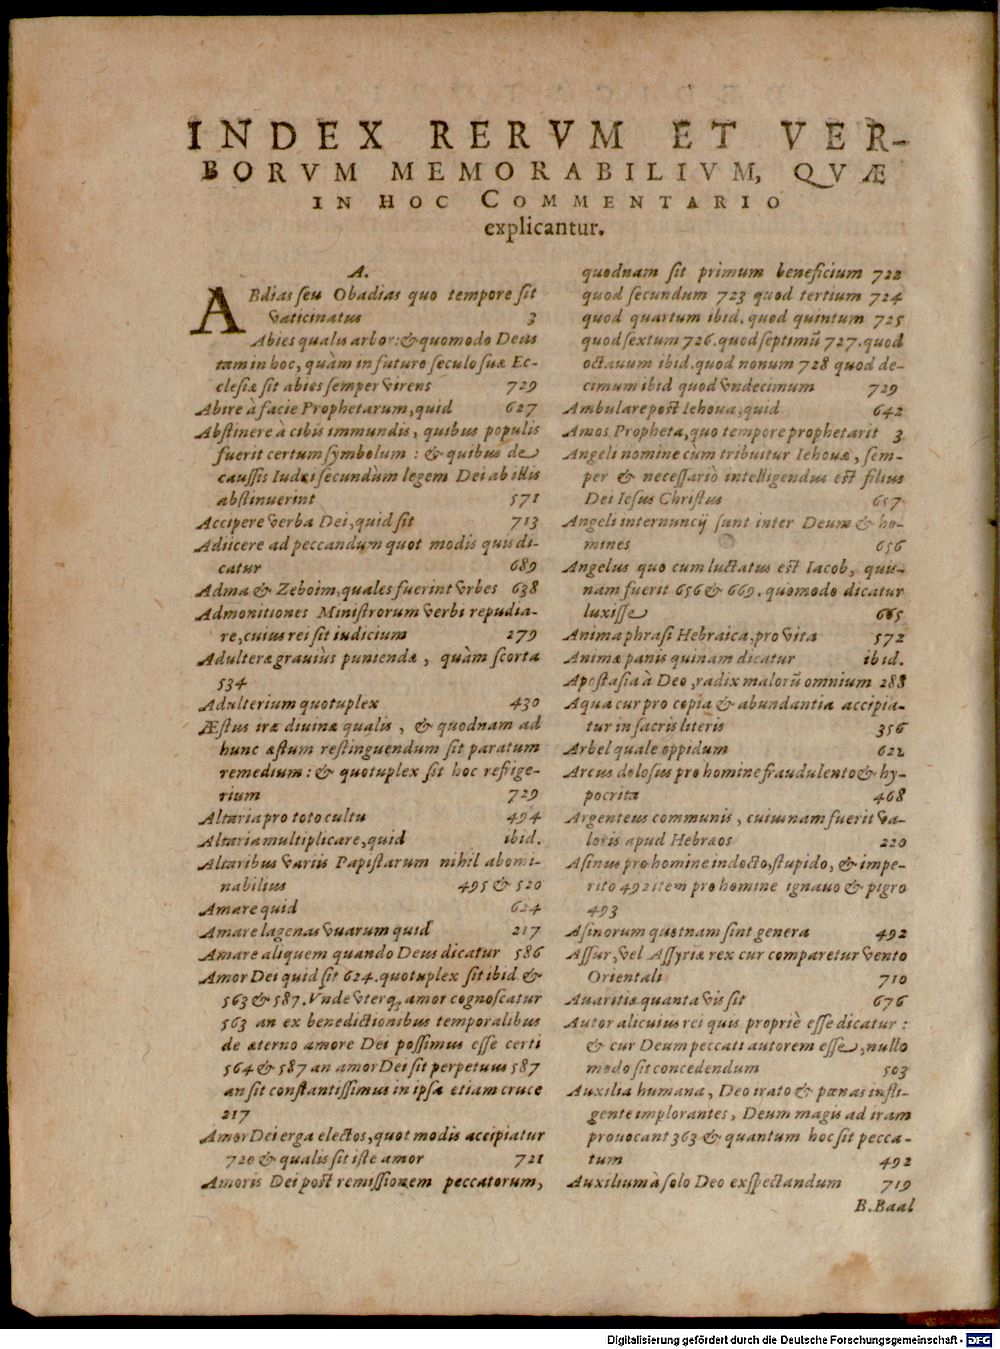 INDEX RERVM ET VER-
BORVM MEMORABILIVM, QVÆ
IN HOC COMMENTARIO
explicantur.
A.
ABdias seu Obadias quo tempore sit
vaticinatus 3
Abies qualis arbor: & quomodo Deus
tam in hoc, quàm in futuro seculo suæ Ec-
clesiæ sit abies semper virens 729
Abire à facie Prophetarum, quid 627
Abstinere à cibis immundis, quibus populis
fuerit certum symbolum : & quibus de
caussis Iudæi secundùm legem Dei ab illis
abstinuerint 571
Accipere verba Dei, quid sit 713
Adiicere ad peccandum quot modis quis di-
catur 689
Adma & Zeboim, quales fuerint vrbes 638
Admonitiones Ministrorum verbi repudia-
re, cuius rei sit iudicium 279
Adulteræ grauiùs puniendæ, quàm scorta
534
Adulterium quotuplex 430
Æstus iræ diuinæ qualis, & quodnam ad
hunc æstum restinguendum sit paratum
remedium: & quotuplex sit hoc refrige-
rium 729
Altaria pro toto cultu 494
Altaria multiplicare, quid ibid.
Altaribus variis Papistarum nihil abomi-
nabilius 495 & 520
Amare quid 624
Amare lagenas vuarum quid 217
Amare aliquem quando Deus dicatur 586
Amor Dei quid sit 624. quotuplex sit ibid &
563 & 587. Vnde vterq; amor cognoscatur
563 an ex benedictionibus temporalibus
de æterno amore Dei possimus esse certi
564 & 587 an amor Dei sit perpetuus 587
an sit constantissimus in ipsa etiam cruce
217
Amor Dei erga electos, quot modis accipiatur
720 & qualis sit iste amor 721
Amoris Dei post remissionem peccatorum,
quodnam sit primum beneficium 722
quod secundum 723 quod tertium 724
quod quartum ibid. quod quintum 725
quod sextum 726. quod septimũ 727. quod
octauum ibid. quod nonum 728 quod de-
cimum ibid quod vndecimum 729
Ambulare post Iehoua, quid 642
Amos Propheta, quo tempore prophetarit 3
Angeli nomine cum tribuitur Iehouæ, sem-
per & necessariò intelligendus est filius
Dei Iesus Christus 657
Angeli internuncij sunt inter Deum & ho-
mines 656
Angelus quo cum luctatus est Iacob, quis-
nam fuerit 656 & 669. quomodo dicatur
luxisse 665
Anima phrasi Hebraica, pro vita 572
Animæ panis quinam dicatur ibid.
Apostasia à Deo, radix malorũ omnium 288
Aqua cur pro copia & abundantia accipia-
tur in sacris literis 356
Arbel quale oppidum 622
Arcus dolosus pro homine fraudulento & hy-
pocrita 468
Argenteus communis, cuiusnam fuerit va-
loris apud Hebræos 220
Asinus pro homine indocto, stupido, & impe-
rito 492 item pro homine ignauo & pigro
493
Asinorum quotnam sint genera 492
Assur, vel Assyriæ rex cur comparetur vento
Orientali 710
Auaritiæ quanta vis sit 676
Autor alicuius rei quis propriè esse dicatur :
& cur Deum peccati autorem esse, nullo
modo sit concedendum 503
Auxilia humana, Deo irato & pœnas infli-
gente implorantes, Deum magis ad iram
prouocant 363 & quantum hoc sit pecca-
tum 492
Auxilium à solo Deo exspectandum 719
B. Baal
Digitalisierung gefördert durch die Deutsche Forschungsgemeinschaft - DFG